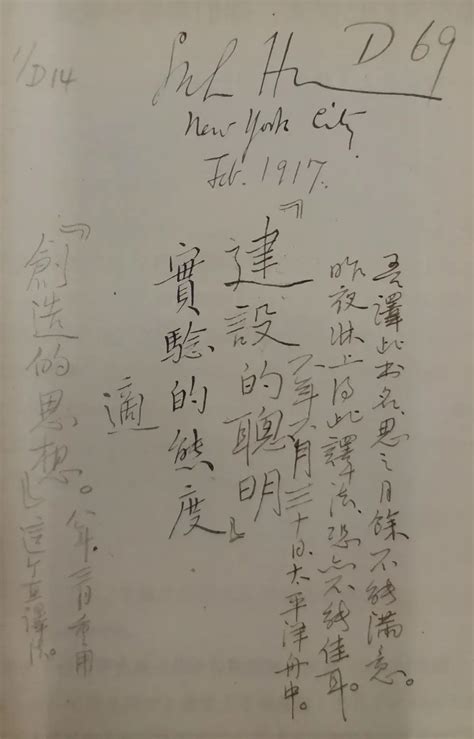 1/D14
D 69
Suh Hu
New York City
Feb. 1917.
吾譯此书名、思之月餘不能满意。
昨夜牀上得此譯法、恐亦不能佳耳。
六年六月三十日、太平洋舟中。
『建設的聰明』
實驗的態度
適
『創造的思想』。八年、三月